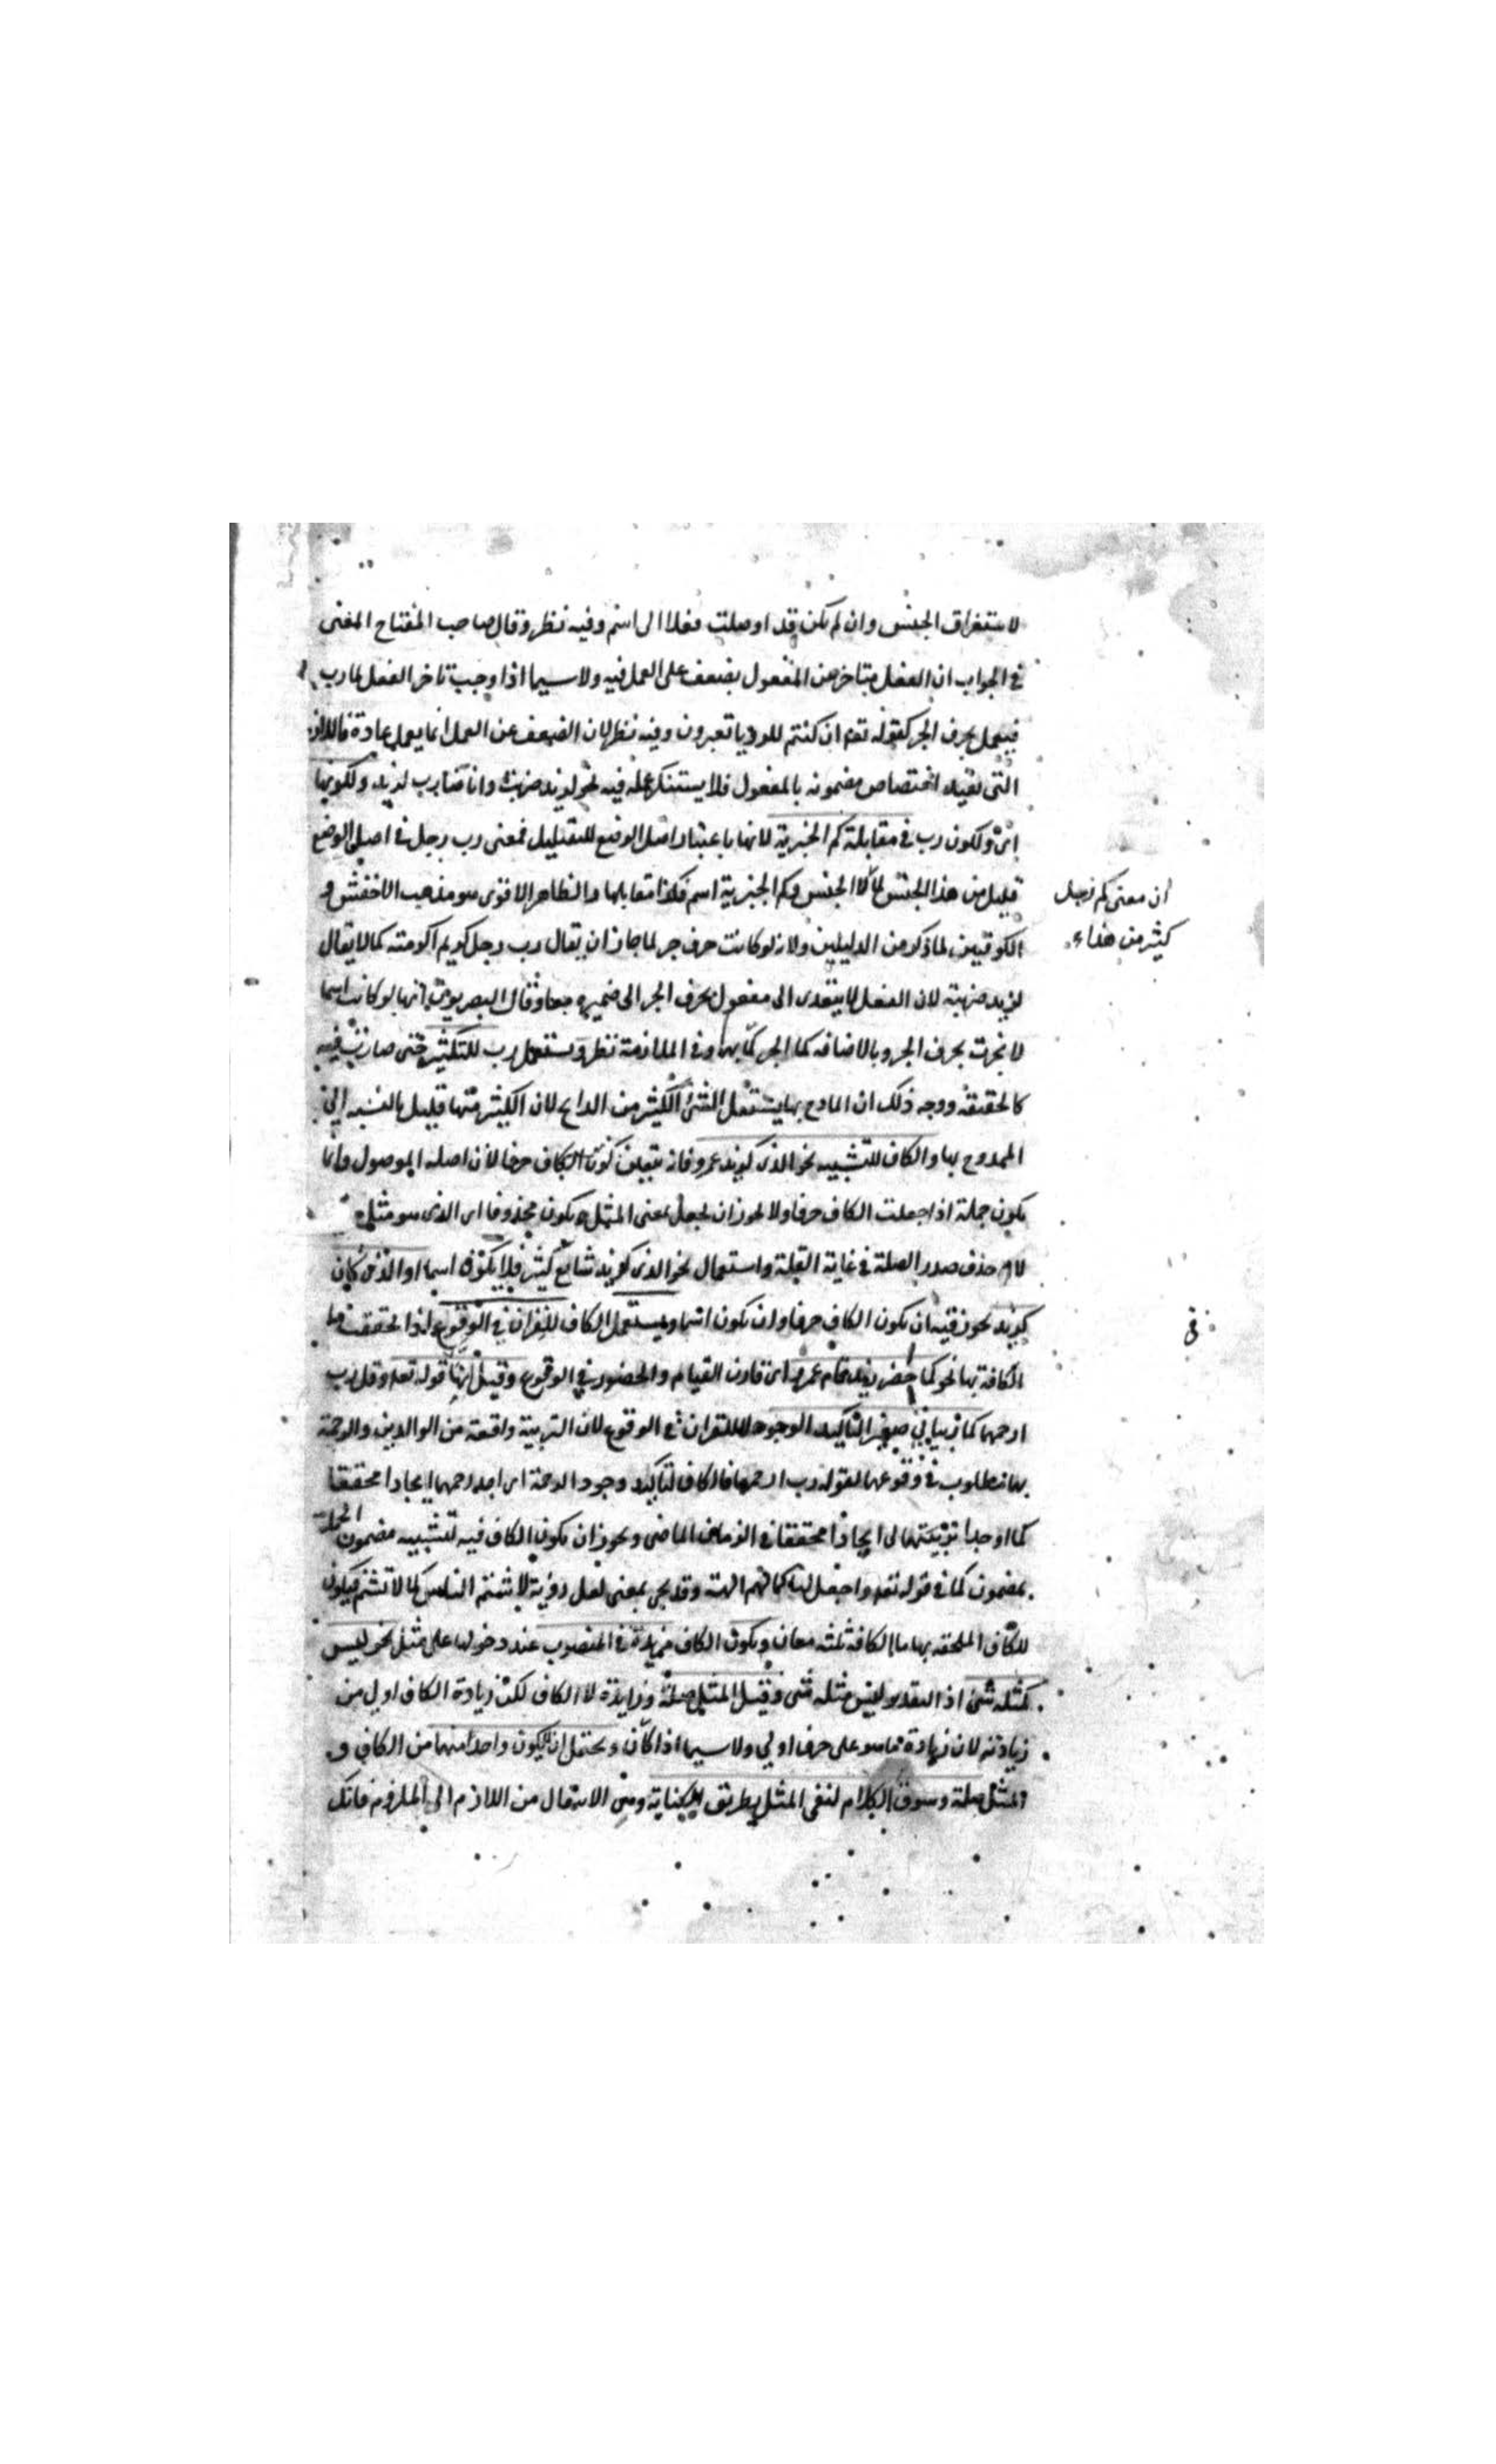 لاستغراق الجنس وان لم يكن قد اوصلت فعلا الى اسم وفيه نظر وقال صاحب المفتاح المغنى
في الجواب ان الفعل بتاخر عن المفعول يضعف على العمل فيه ولاسيما اذا وجب تاخر الفعل كما رب
فيعمل بحرف الجر كقوله تعه ان كنتم للرويا تعبرون وفيه نظر لان الضعف عن العمل انما يعمل عادة
التى تفيد اختصاص مضمونه بالمفعول فلا يستنكر عمله فيه نحو لزيد ضربت وانا ضارب لزيد ولكونها
اى ولكون رب في مقابلة كم الخبرية لانها باعتبار اصل الوضع للتقليل فمعنى رب رجل في اصل الوضع
قليل من هذا الجنس الجنس وكم الخبرية اسم فكذا مقابلها والظاهر الاقوى هو مذهب الاخفش و
ان معنى كم رجل
كثير من هذا
الكوفيين لما ذكر من الدليلين ولانه لو كانت حرف جر لما جاز ان يقال رب رجل كريم اكرمته كما لا يقال
لزيد ضربته لان الفعل لا يتعدى الى مفعول بحرف الجر الى ضميره معا وقال البصريون انها لو كانت اسما
لانجرت بحرف الجر وبالاضافه كما انجر كم بهما وفي الملازمة نظر ويستعمل رب للتكثير حتى صارت فيه
كالحقيقة ووجه ذلك ان المادح بها يستقل الشئ الكثير من المدايح لان الكثير منها قليل بالنسبه الى
الممدوح بها والكاف للتشبيه نحو الذى كزيد عمرو فانه يتعين كون الكاف حرفا لان اصله الموصول وانما
يكون جملة اذا جعلت الكاف حرفا ولا يجوز ان يجعل بمعنى المثل ويكون محذوفا اى الذى هو مثله
لان حذف صدر الصلة في غاية القلة واستعمال نحو الذى كزيد شايع كثير فلا يكون اسما او الذى كان
كزيد يجوز فيه ان يكون الكاف حرفا وان يكون اسما ويستعمل الكاف للقران في الوقوع اذا لحقت ما
في
الكافة بها نحو كما حضر زيد قام عمرو اى قارن القيام والحضور في الوقوع وقيل انها قوله تعه وقل رب
ارحمهما كما ربياني صغيرا لتاكيد الوجود لا للقران في الوقوع لان التربية واقعة من الوالدين والرحمة
بهما مطلوب في وقوعها لقوله رب ارحمهما فالكاف لتاكيد وجود الرحمة اى اوجد رحمهما ايجادا محققا
كما اوجدا تربيتهما لى ايجادا محققا في الزمان الماضى ويجوز ان يكون الكاف فيه لتشبيه مضمون الجملة
بمضمون كما في قوله تعه واجعل لنا كما لهم الهة وقد يجى بمعنى لعل رؤية لا تشتم الناس كما لا تشتم فيكون
للكاف الملحقه بها ما الكافة ثلثه معان ويكون الكاف مزيدة في المنصوب عند دخولها على مثل نحو ليس
كمثله شئ اذ التقدير ليس مثله شئ وقيل المثل صلة وزايدة لا الكاف لكن زيادة الكاف اولى من
زيادته لان زيادة ما هو على حرف اولى ولاسيما اذا كان ويحتمل ان لا يكون واحد منهما من الكاف و
المثل صلة وسوق الكلام لنفى المثل بطريق الكناية وهى الانتقال من اللازم الى الملزوم فانك